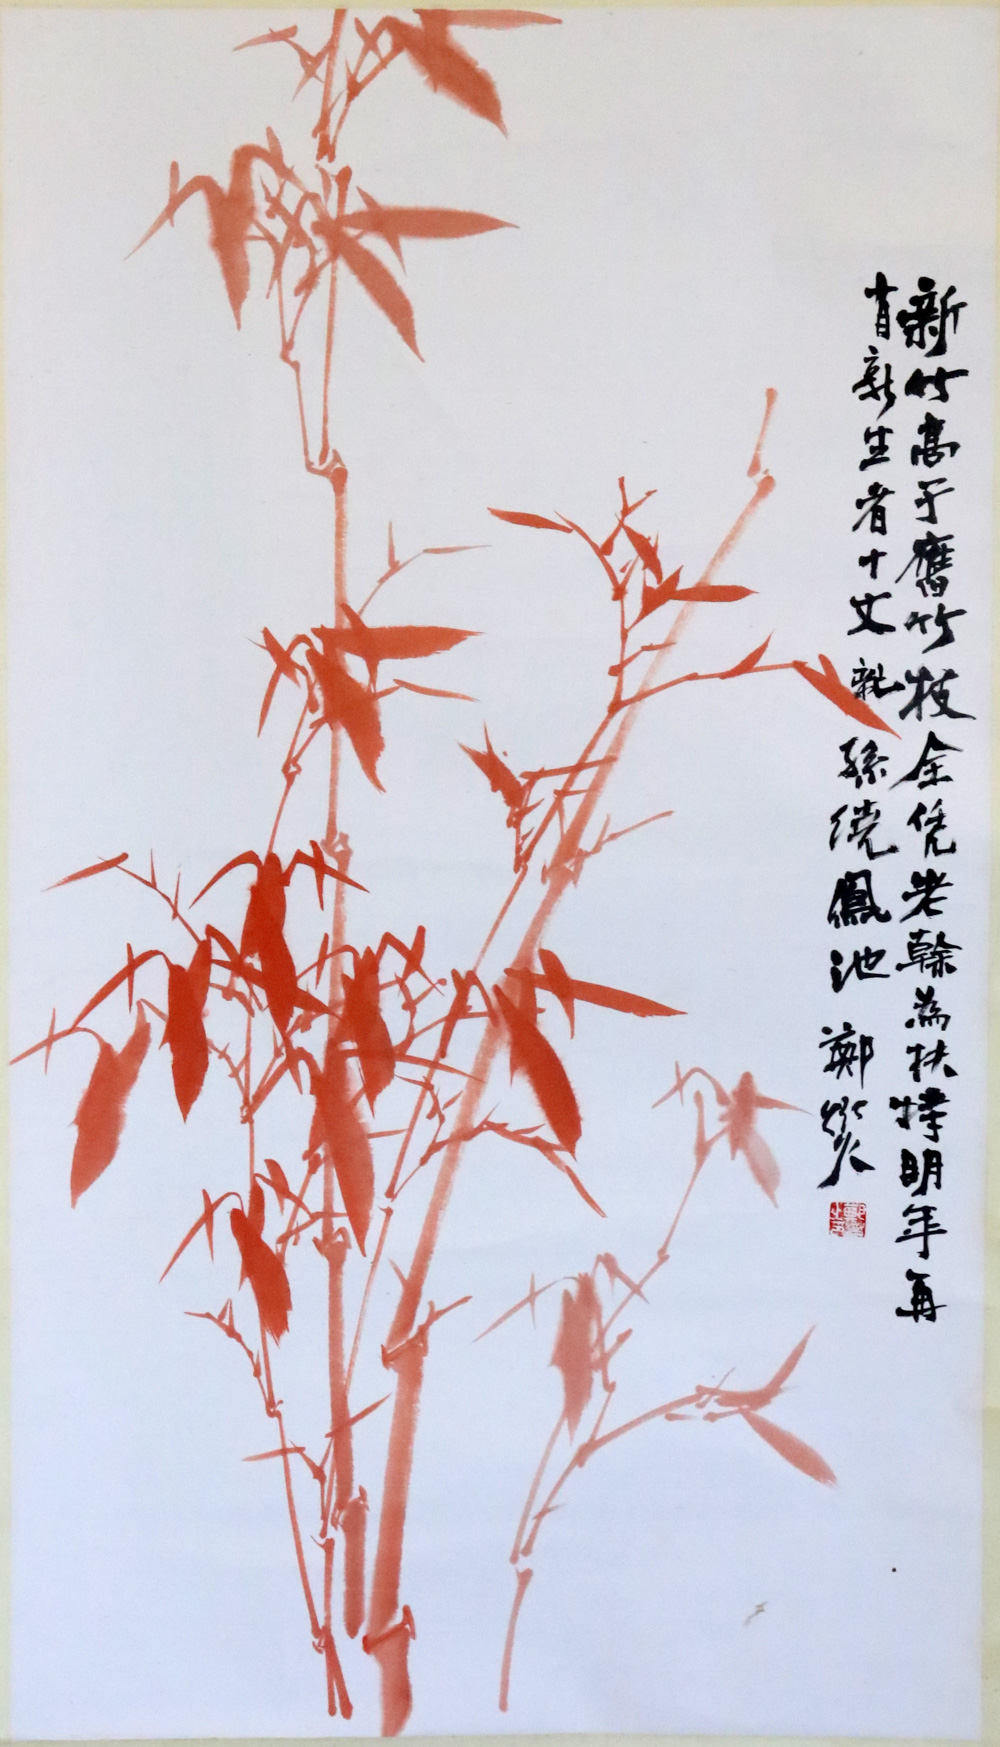 新竹高于舊竹枝全凭老幹為扶持明年再
有新生者十丈龍孫繞鳳池 鄭燮
鄭燮之印